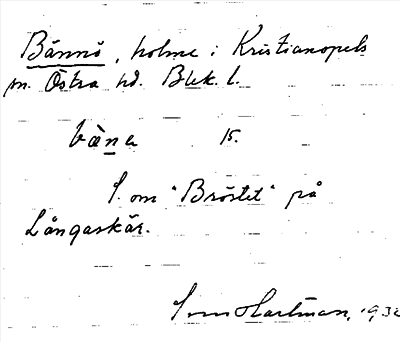 Bännö, holme i Kristianopels
sn. Östra hd. Blek. l.
bæna 15.
S. om "Bröstet" på
Långaskär.
Sven Hartman, 1932